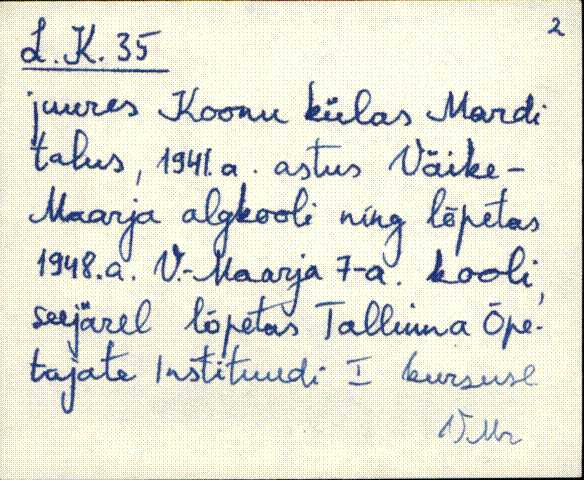 2
L.K. 35
juures Koonu külas Mardi
talus, 1941.a. astus Väike-
Maarja algkooli ning lõpetas
1948.a. V.-Maarja 7-a. kooli,
seejärel lõpetas Tallinna Õpe-
tajate Instituudi I kursuse
V.Mr